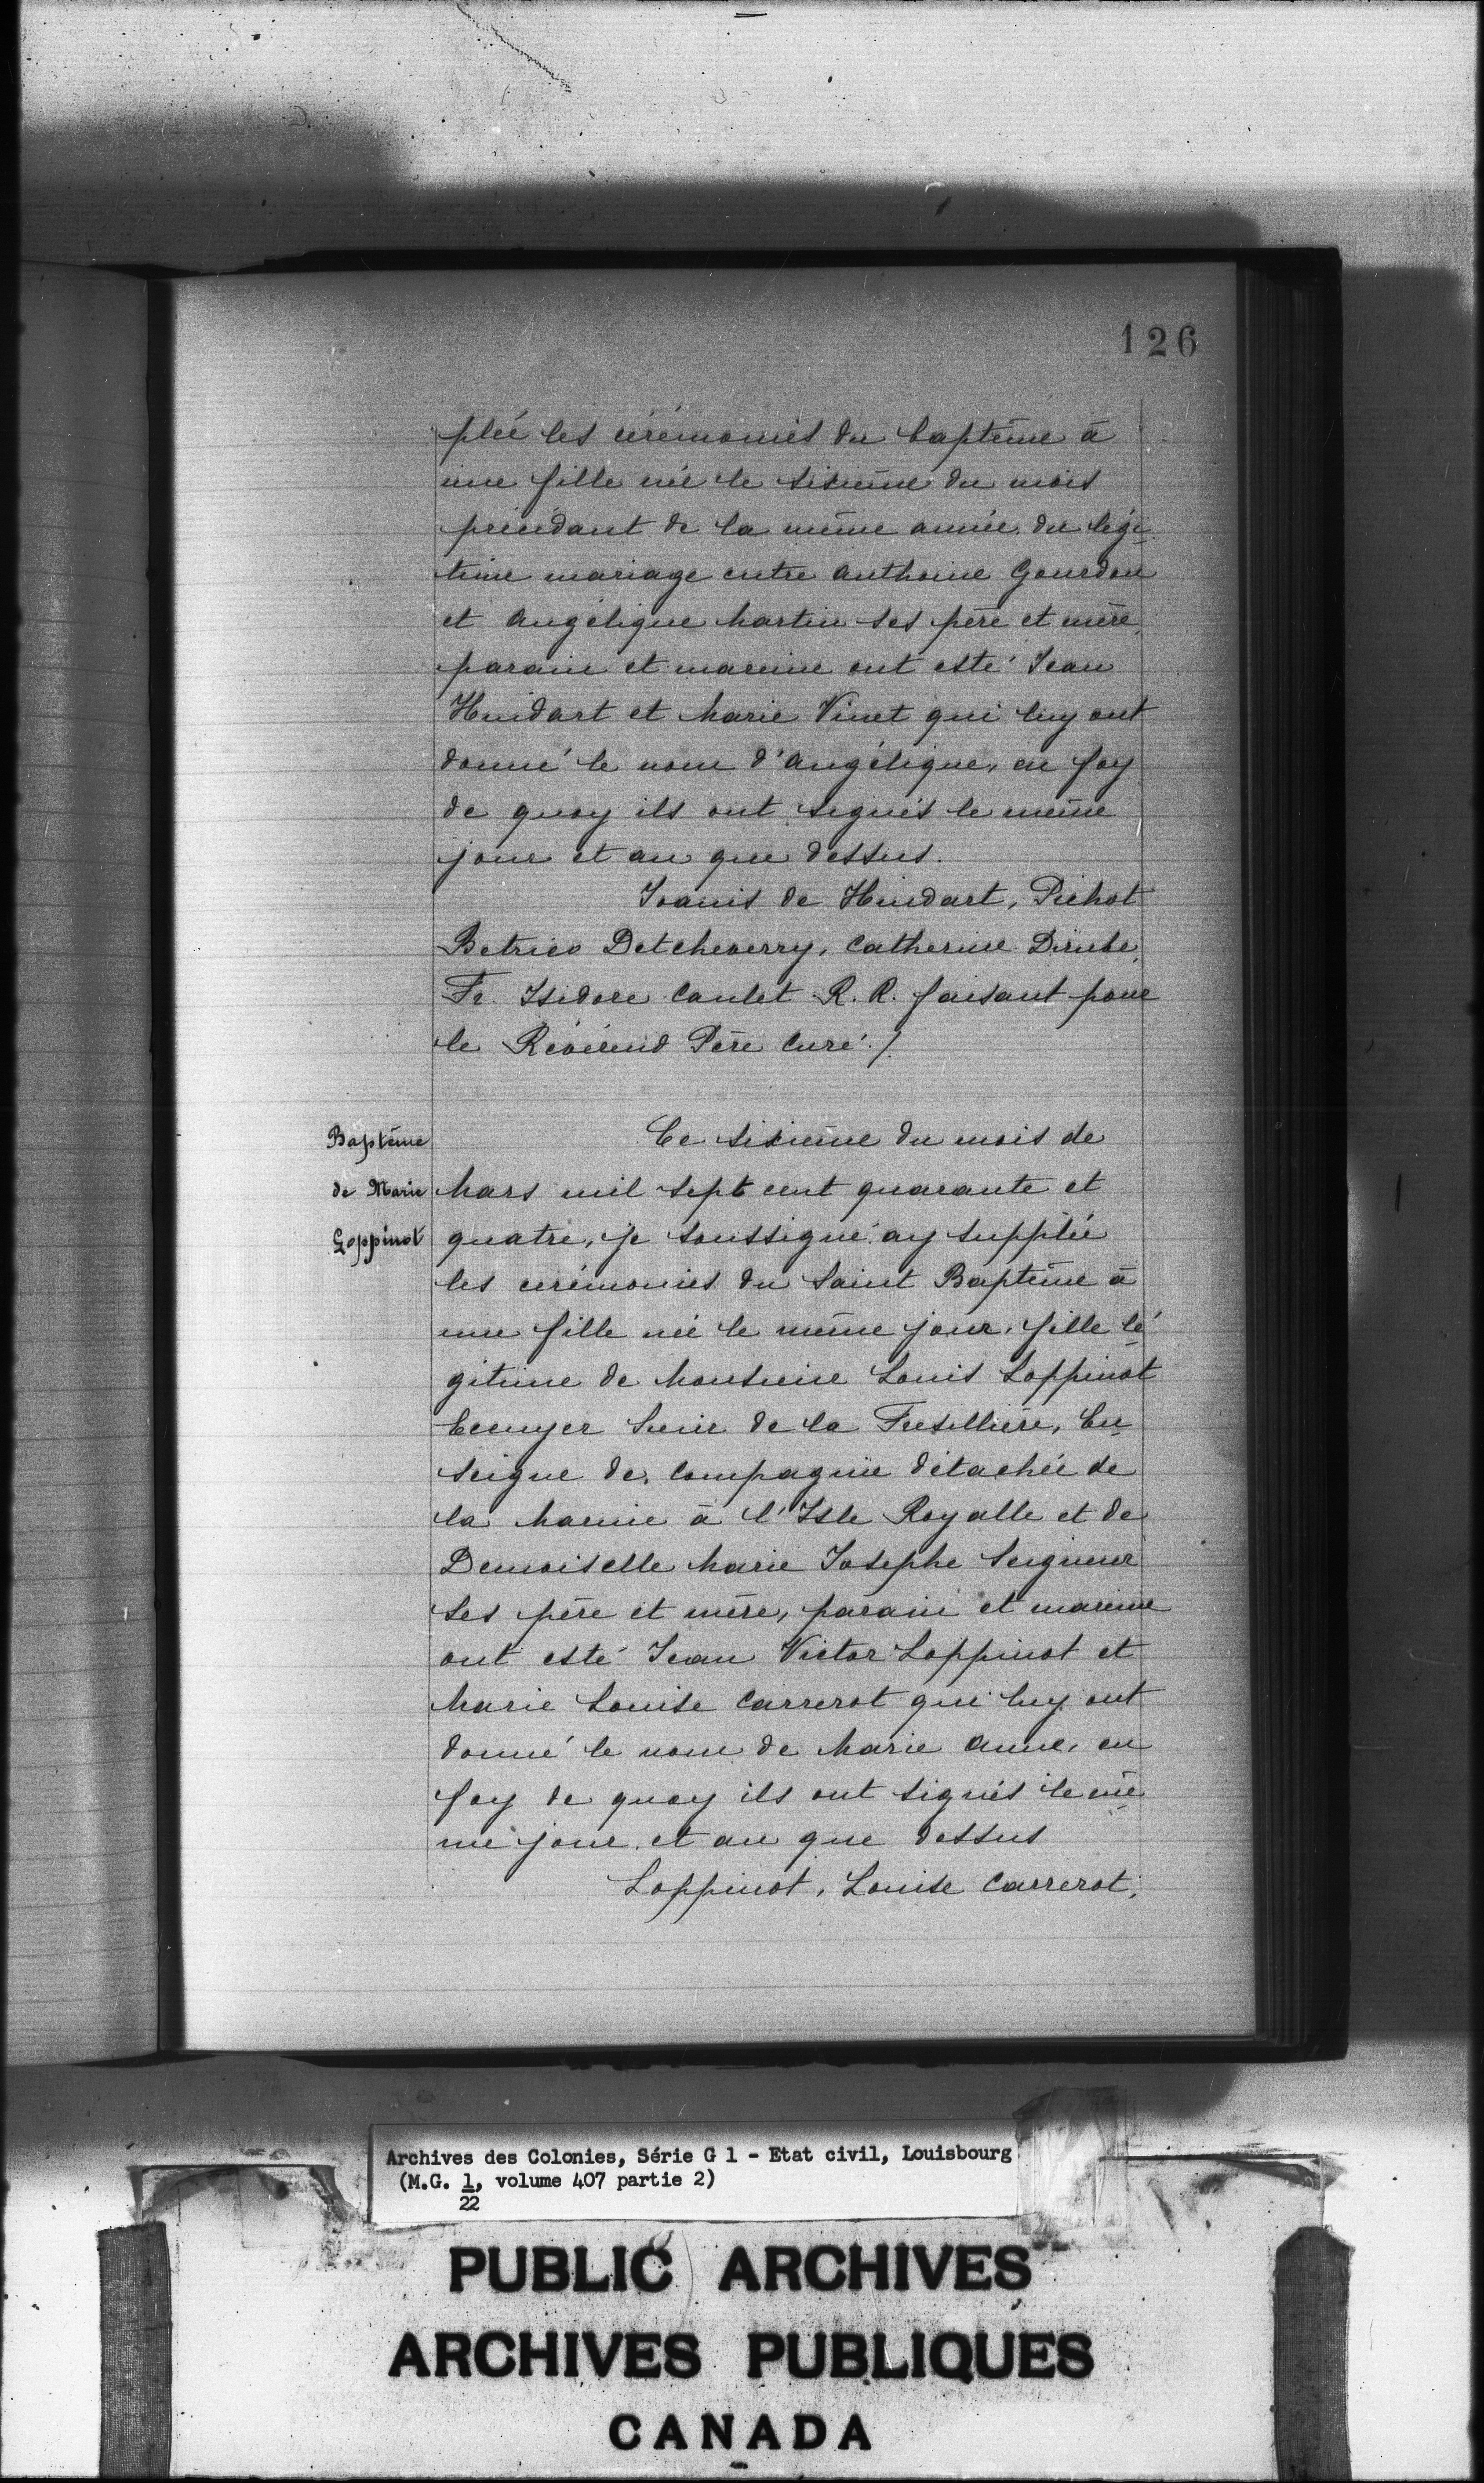 126
pléé les cérémonies du baptême à
une fille née le sixième du mois
précédant de la même année du légi-
time mariage entre Anthoine Gourdon
et Angélique Martin ses père et mère,
parain et mareine ont esté Jean
Huidart et Marie Vinet qui luy ont
donné le nom d'Angélique, en foy
de quoy ils ont signés le même
jour et an que dessus.
Joanis de Huidart, Pichot
Betrico Detcheverry, Catherine Dirube,
Fr. Isidore Caulet R. R. faisant pour
le Révérend Père Curé ./.
Baptême
de Marie
Loppinot
Ce sixieme du mois de
Mars mil sept cent quarante et
quatre, je soussigné ay suppléé
les cérémonies du Saint Baptême à
une fille née le même jour, fille lé
gitime de Monsieur Louis Loppinot
Ecuyer Sieur de la Fresillière, En-
seigne de compagnie détachée de
la Marine à l'Isle Royalle et de
Demoiselle Marie Josephe Seigneur
ses père et mère, parain et mareine
ont esté Jean Victor Loppinot et
Marie Louise Carrerot qui luy ont
donné le nom de Marie Anne, en
foy de quoy ils ont signés le mê-
me jour et an que dessus
Loppinot, Louise Carrerot,
Archives des Colonies, Série G 1 - Etat civil, Louisbourg
(M.G. 1, volume 407 partie 2)
22
PUBLIC ARCHIVES
ARCHIVES PUBLIQUES
CANADA